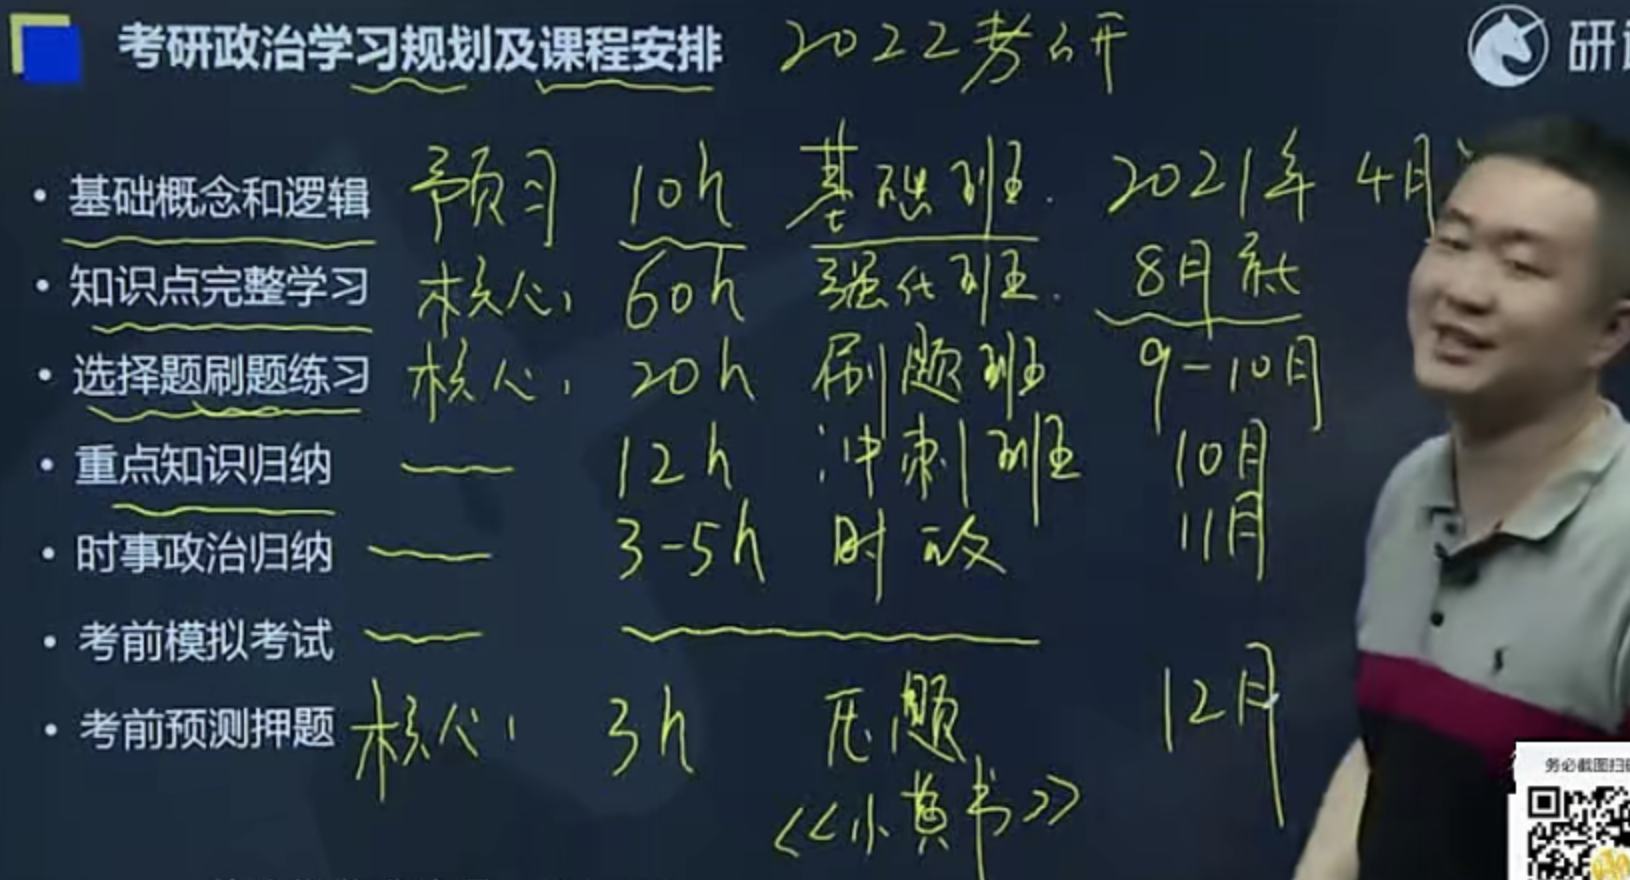 考研政治学习规划及课程安排 2022考研
研
• 基础概念和逻辑 予页习 10h 基础班. 2021年 4月
• 知识点完整学习 核心, 60h 强化班. 8月前
• 选择题刷题练习 核心, 20h 刷题班 9-10月
• 重点知识归纳 — 12h 冲刺班 10月
• 时事政治归纳 — 3-5h 时政 11月
• 考前模拟考试 —
• 考前预测押题 核心, 3h 压题 12月
<<小黄书>>
务必截图扫